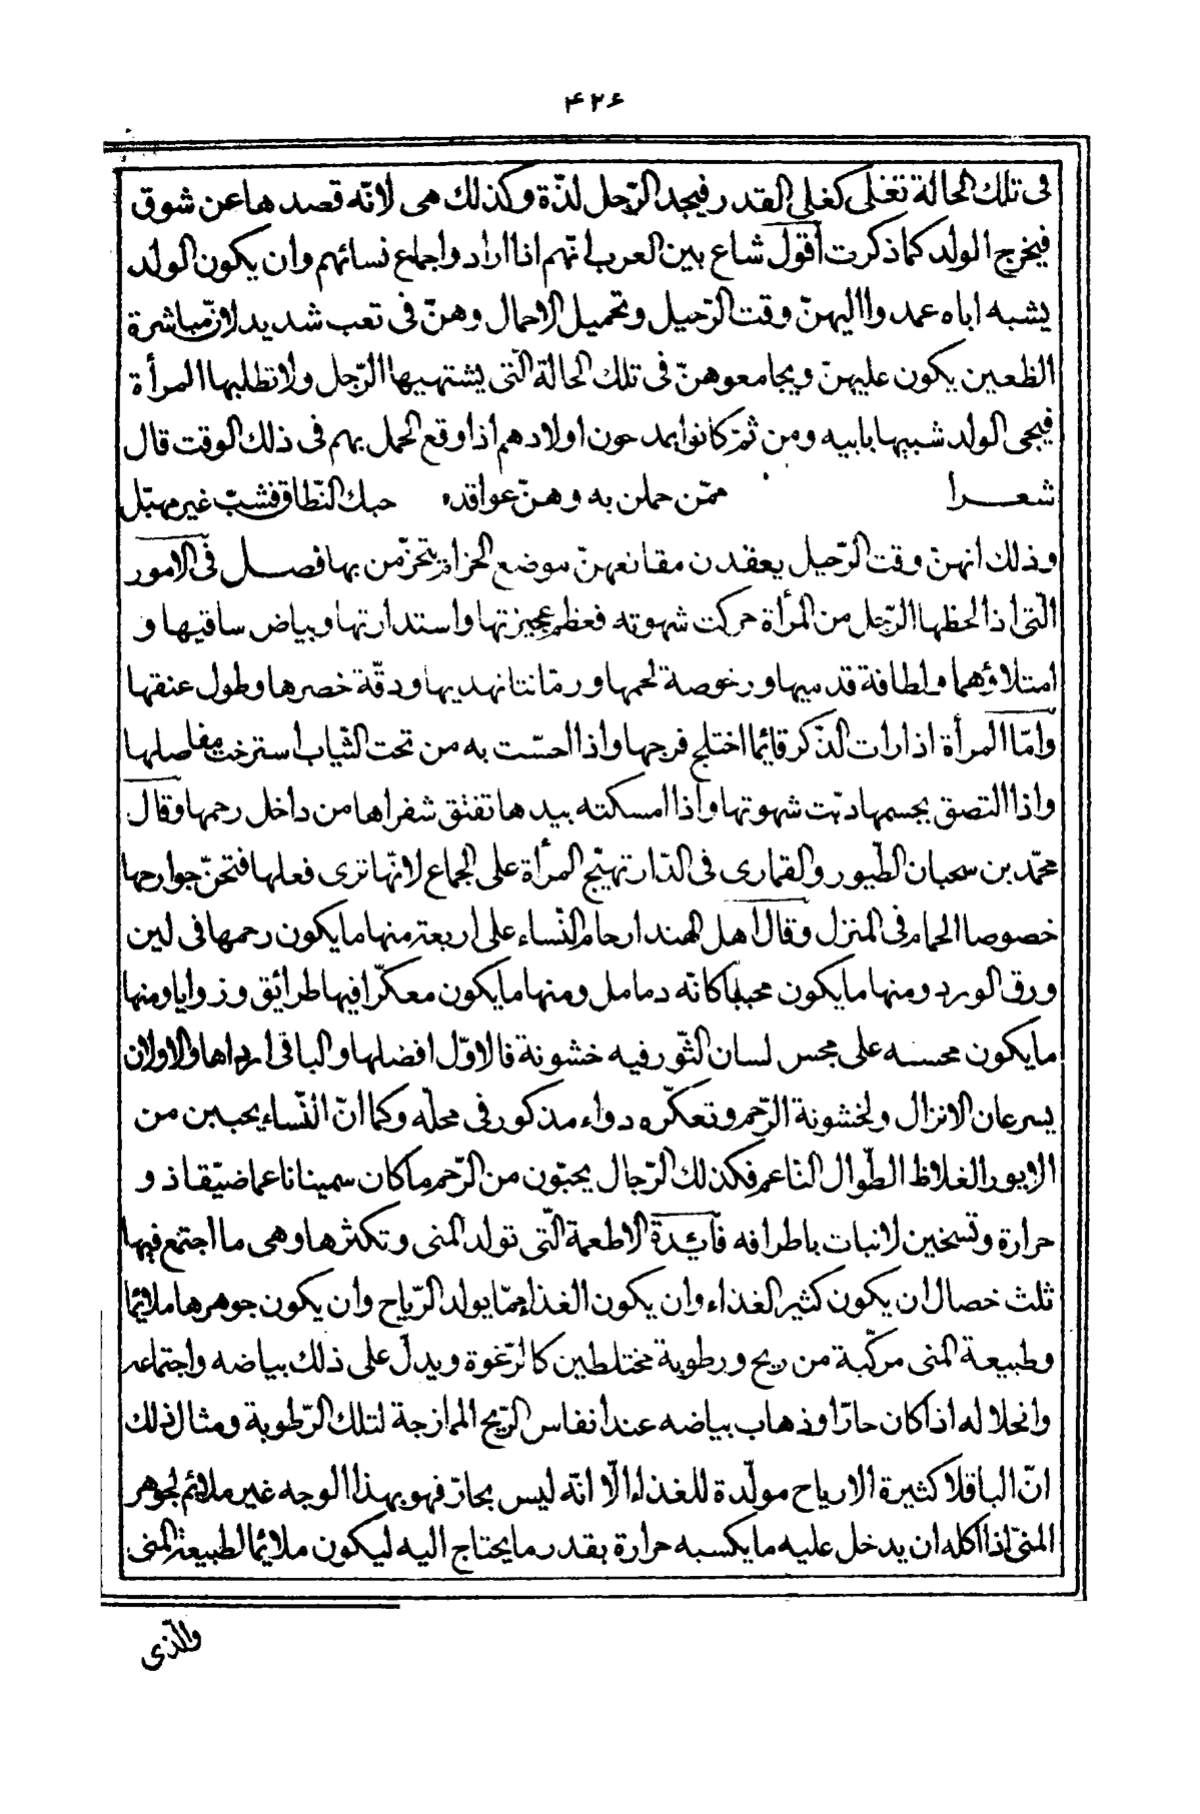 ۴۲۶
فى تلك الحالة تغلى كغلى القدر فيجد الرّجل لذّة وكذلك هى لانّه قصدها عن شوق
فيخرج الولد كما ذكرت أقول شاع بين العرب انّهم اذا ارادوا جماع نسائهم وان يكون الولد
يشبه اباه عمدوا اليهنّ وقت الرّحيل وتحميل الاحمال وهنّ فى تعب شديد لانّ مباشرة
الظعين يكون عليهنّ ويجامعوهنّ فى تلك الحالة الّتى يشتهيها الرّجل ولا تطلبها المرأة
فيجى الولد شبيها بابيه ومن ثمّ كانوا يمدحون اولادهم اذا وقع الحمل بهم فى ذلك الوقت قال
شعرا ممّن حملن به وهنّ عواقده حبك النّطاق فشبّ غير مهبّل
وذلك انهنّ وقت الرّحيل يعقدن مقانعهنّ موضع الحزام يتحزّمن بها فصل فى الامور
الّتى اذا لحظها الرّجل من المرأة حركت شهوته فعظم عجيزتها واستدارتها وبياض ساقيها و
امتلاؤهما ولطافة قدميها ورخوصة لحمها ورمّانتا نهديها ودقّة خصرها وطول عنقها
وامّا المرأة اذا رات الذّكر قائما اختلج فرجها واذا احسّت به من تحت الثّياب استرخت مفاصلها
واذا التصق بجسمها دبّت شهوتها واذا امسكته بيدها تفتق شفراها من داخل رحمها وقال
محمّد بن سحبان الطّيور والقمارى فى الدّار تهيّج المرأة على الجماع لانّها ترى فعلها فتحنّ جوارحها
خصوصا الحمام فى المنزل وقال اهل الهند ارحام النّساء على اربعة منها ما يكون رحمها فى لين
ورق الورد ومنها ما يكون محببا كانّه دمامل ومنها ما يكون معكّرا فيها طرائق وزوايا ومنها
ما يكون محسه على مجس لسان الثّور فيه خشونة فالاوّل افضلها والباقى ارداها والاولان
يسرعان الانزال ولخشونة الرّحم وتعكّره دواء مذكور فى محلّه وكما انّ النّساء يحببن من
الايور الغلاظ الطّوال النّاعم فكذلك الرّجال يحبّون من الرّحم ما كان سمينا ناعما ضيّقا ذو
حرارة وتسخين لا نبات باطرافه فآئدة الاطعمة الّتى تولد المنى وتكثرها وهى ما اجتمع فيها
ثلث خصال ان يكون كثير الغذاء وان يكون الغذاء ممّا يولد الرّياح وان يكون جوهرها ملائما
وطبيعة المنى مركّبة من ريح ورطوبة مختلطين كالرّغوة ويدلّ على ذلك بياضه واجتماعه
وانحلاله اذا كان حارّا وذهاب بياضه عند انفاس الرّيح الممازجة لتلك الرّطوبة ومثال ذلك
انّ الباقلا كثيرة الارياح مولّدة للغذاء الّا انّه ليس بحارّ فهو بهذا الوجه غير ملائم لجوهر
المنىّ اذا اكله ان يدخل عليه ما يكسبه حرارة بقدر ما يحتاج اليه ليكون ملائما لطبيعة المنى
والّذى